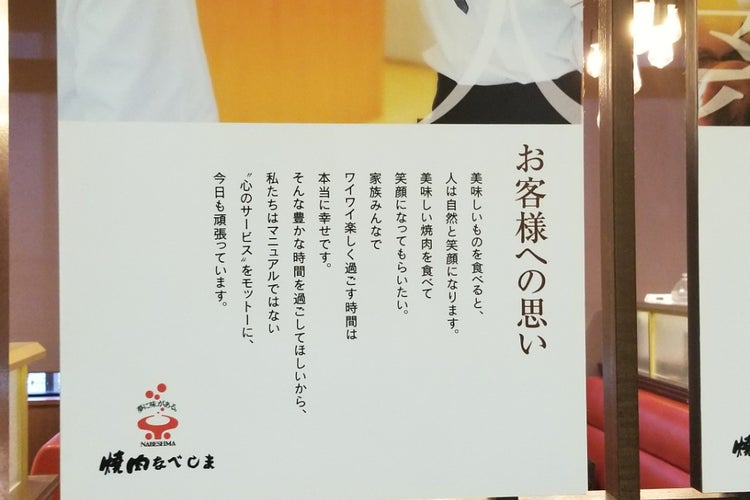 お客様への思い
美味しいものを食べると、
人は自然と笑顔になります。
美味しい焼肉を食べて
笑顔になってもらいたい。
家族みんなで
ワイワイ楽しく過ごす時間は
本当に幸せです。
そんな豊かな時間を過ごしてほしいから、
私たちはマニュアルではない
〝心のサービス〟をモットーに、
今日も頑張っています。
夢に味がある。
NABESHIMA
焼肉なべしま